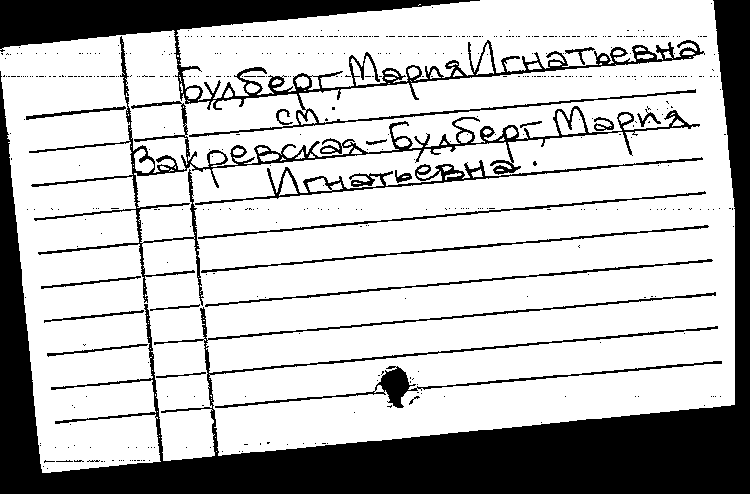 Будберг, Мария Игнатьевна
см.:
Закревская-Будберг, Мария
Игнатьевна.